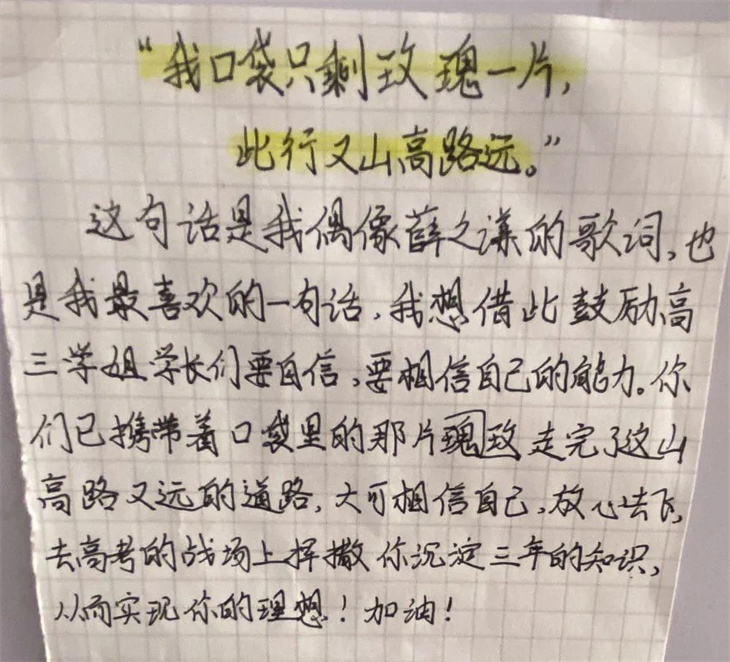 “我口袋只剩玫瑰一片,
此行又山高路远。”
这句话是我偶像薛之谦的歌词,也
是我最喜欢的一句话,我想借此鼓励高
三学姐学长们要自信,要相信自己的能力。你
们已携带着口袋里的那片瑰玫走完了这山
高路又远的道路,大可相信自己,放心去飞,
去高考的战场上挥撒你沉淀三年的知识,
从而实现你的理想!加油!